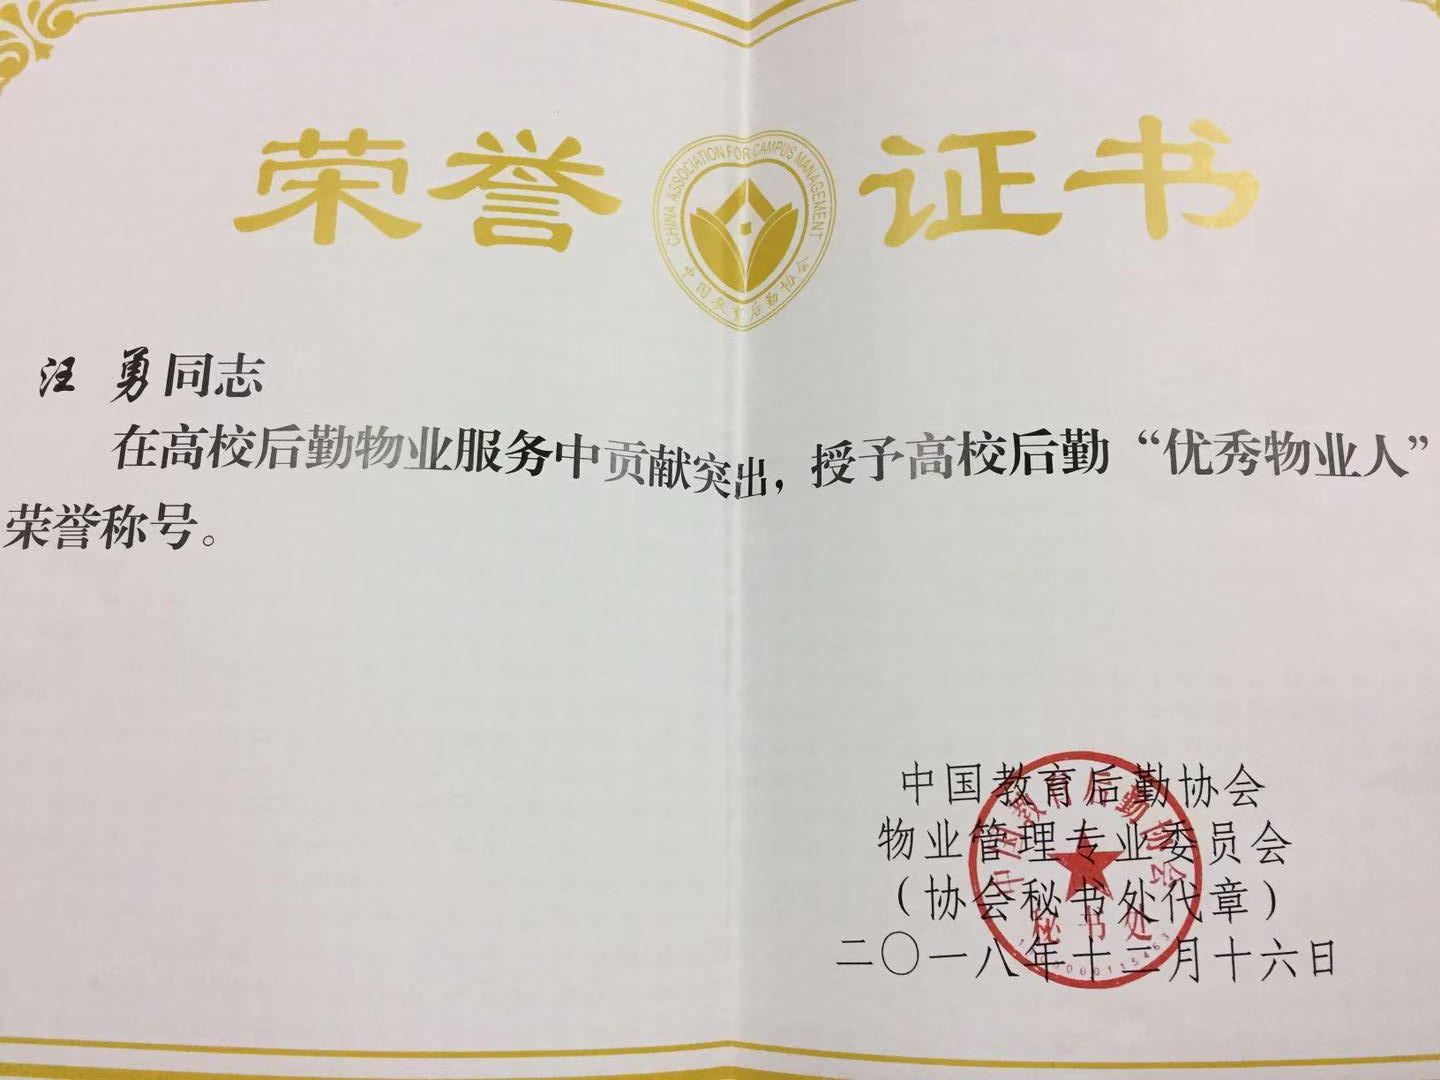 荣誉证书
CHINA ASSOCIATION FOR CAMPUS MANAGEMENT
中国教育后勤协会
汪 勇同志
在高校后勤物业服务中贡献突出，授予高校后勤“优秀物业人”
荣誉称号。
中国教育后勤协会
物业管理专业委员会
（协会秘书处代章）
二〇一八年十二月十六日
中国教育后勤协会
秘书处